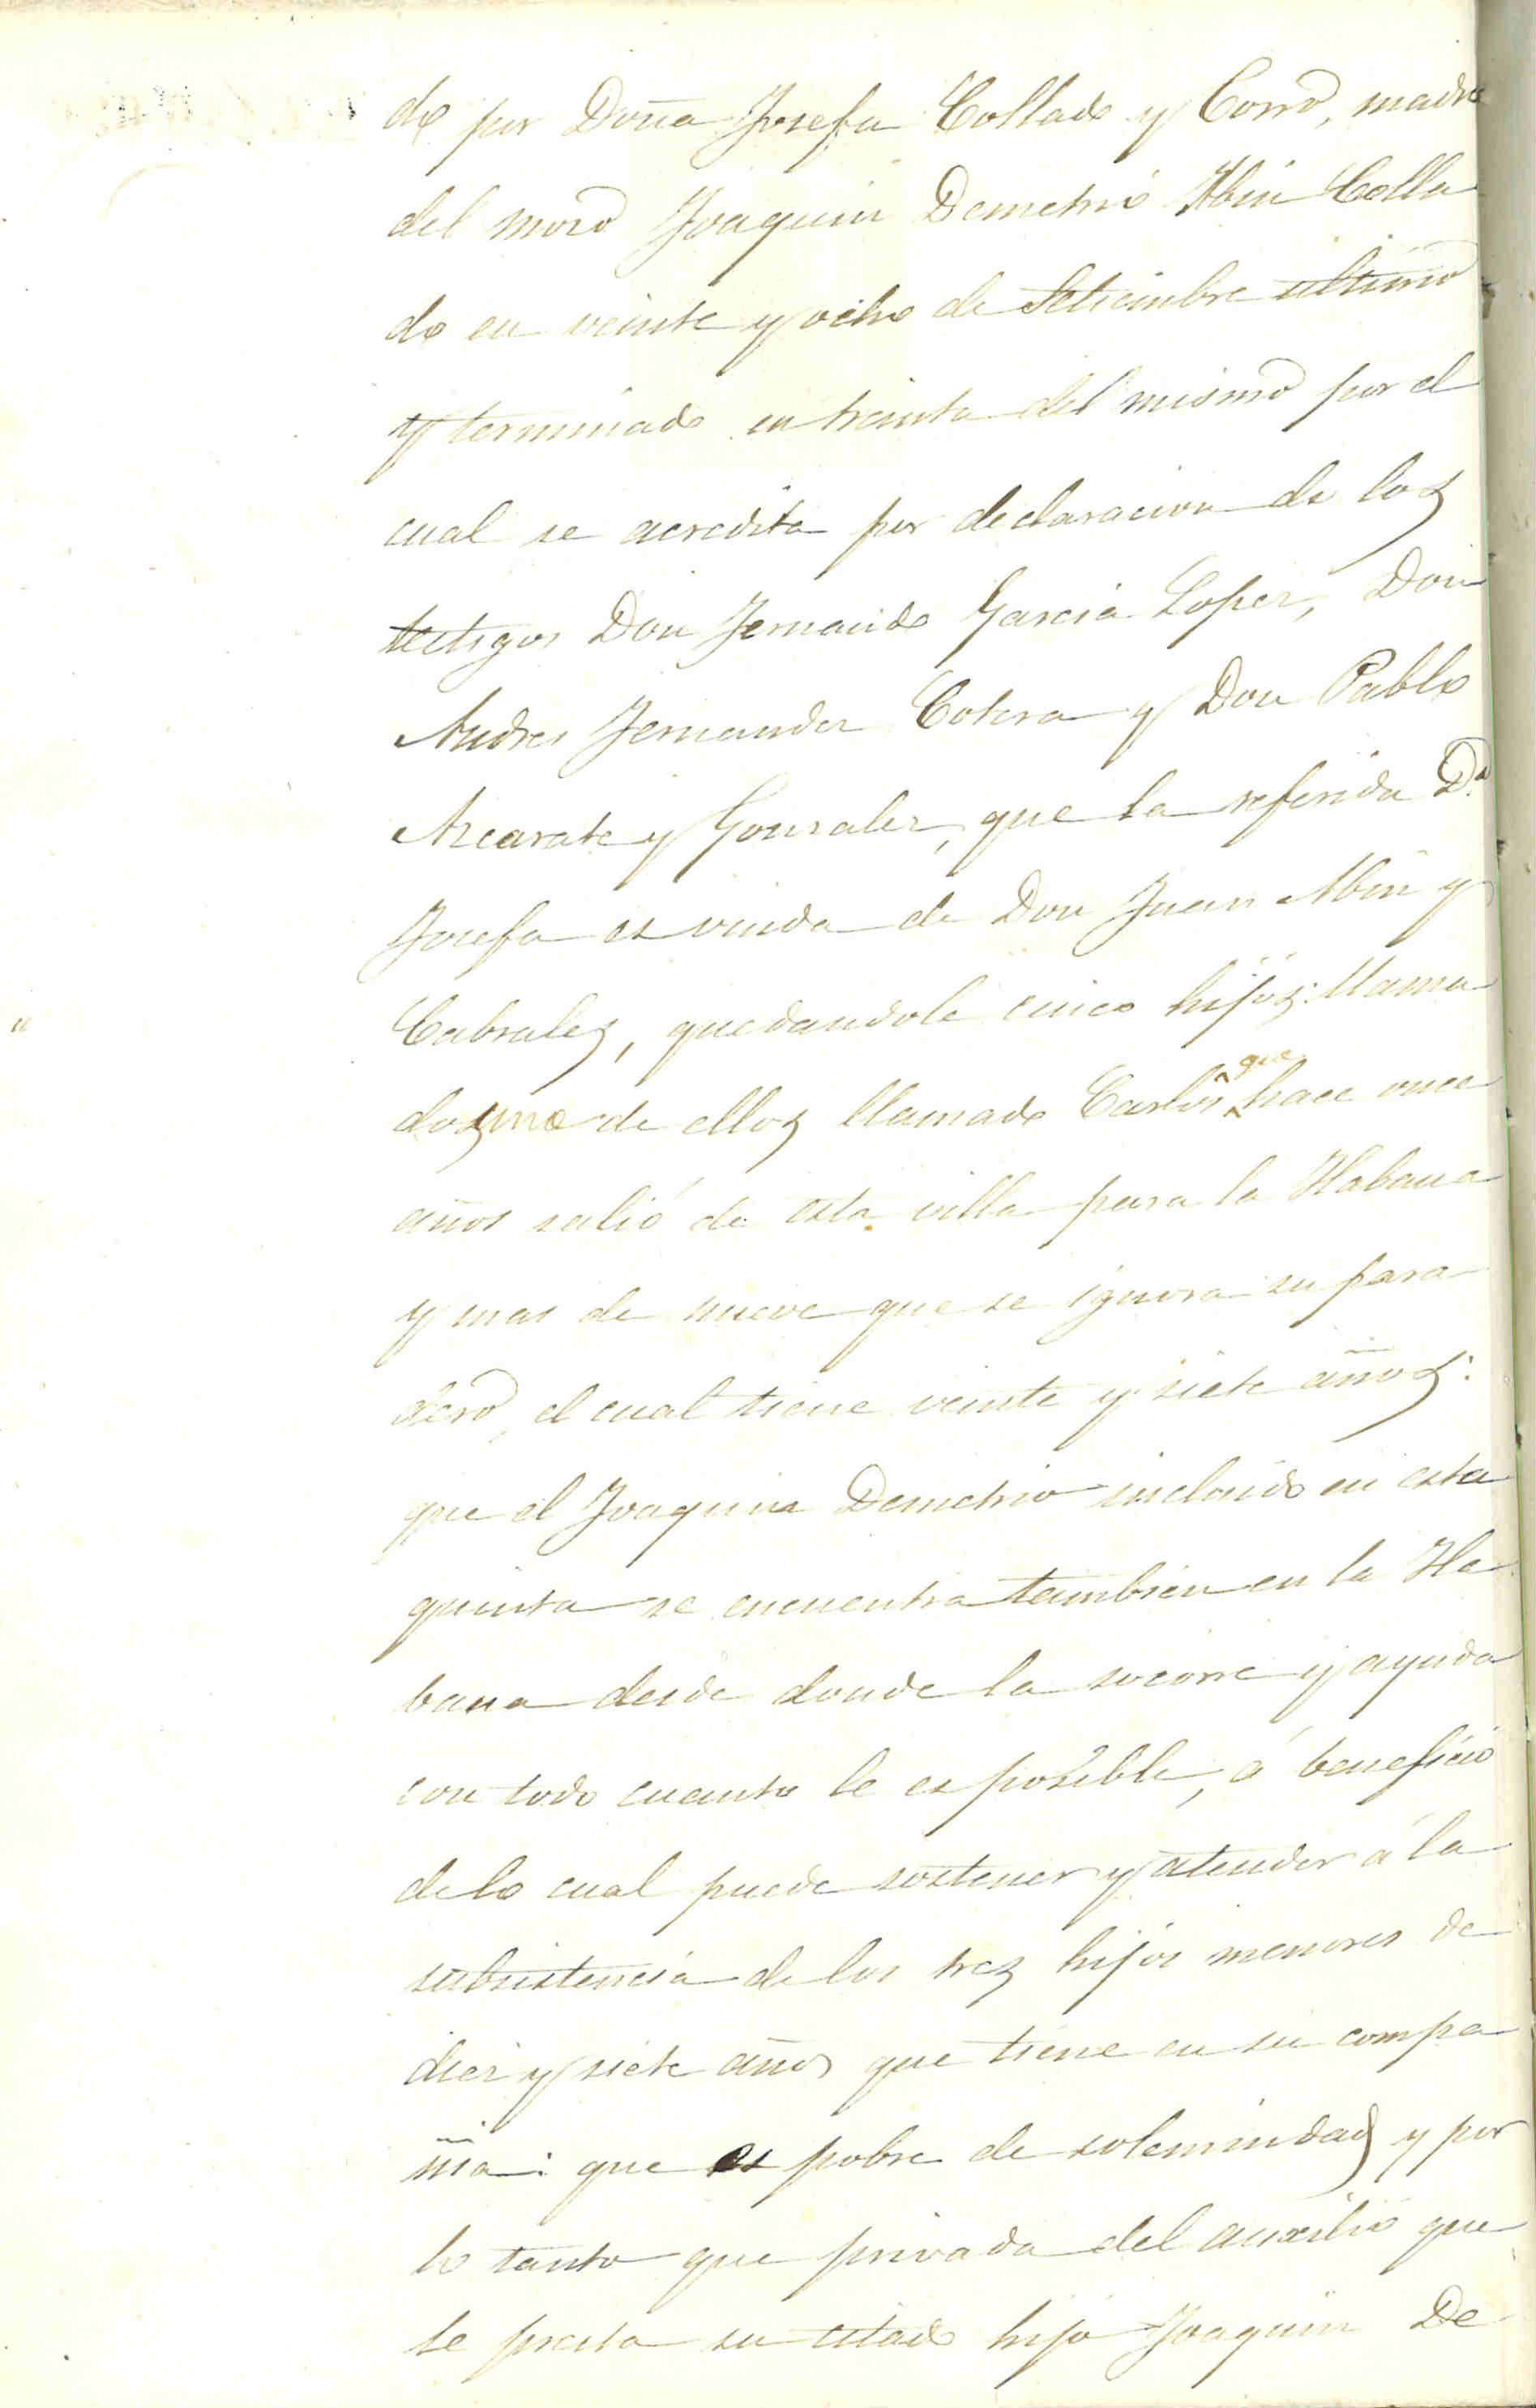 do por Doña Josefa Collado y Corro, madre
del mozo Joaquin Demetrio Abin Colla
do en veinte y ocho de Setiembre ultimo
y terminado en treinta del mismo por el
cual se acredita por declaracion de los
testigos Don Fernando Garcia Lopez, Don
Andres Fernandez Cotera y Don Pablo
Azcarate y Gonzalez, que la referida D.ª
Josefa es viuda de Don Juan Abin y
Cabrales, quedandole cinco hijos: llama
dos uno de ellos llamado Carlos que hace once
años salió de esta villa para la Habana
y mas de nueve que se ignora su para
dero, el cual tiene veinte y siete años:
que el Joaquin Demetrio incluido en esta
quinta se encuentra tambien en la Ha
bana desde donde la socorre y ayuda
con todo cuanto le es posible, á beneficio
de lo cual puede sostener y atender á la
subsistencia de los tres hijos menores de
diez y siete años que tiene en su compa
ñia: que es pobre de solemnidad y por
lo tanto que privada del auxilio que
le presta su citado hijo Joaquin De